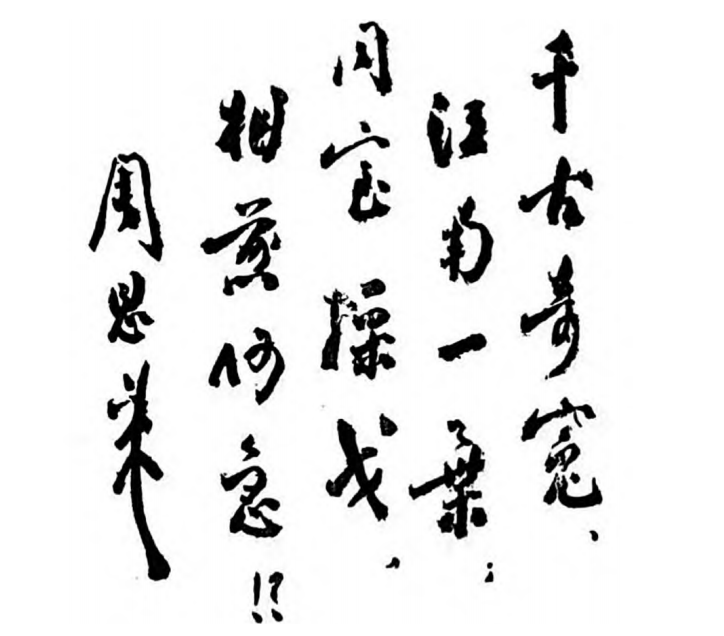 千古奇冤、
江南一葉；
同室操戈、
相煎何急！？
周恩來